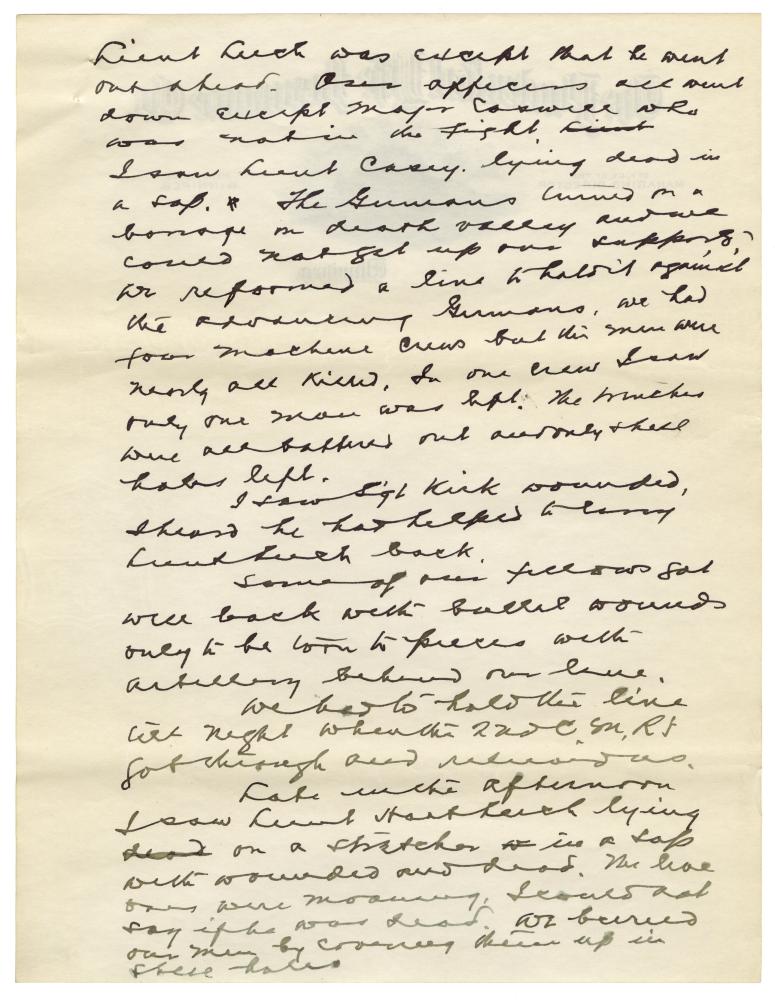 Lieut Leech was except that he went
out ahead. Our officers all went
down except Major Caswell who
was not in the fight. Lieut
I saw Lieut Casey. lying dead in
a sap. The Germans turned on a
barrage on death valley and we
could not get up our supports,
we reformed a line to hold it against
the advancing Germans, we had
four machine crews but the men were
nearly all killed, In one crew I saw
only one man was left. The trenches
were all battered out and only shell
holes left.
I saw Sgt Kirk wounded,
I heard he had helped to carry
Lieut Leech back.
Some of our fellows got
well back with bullet wounds
only to be torn to pieces with
artillery behind our line.
We had to hold the line
till night when the 2nd C.M.R's
got through and relieved us.
Late in the afternoon
I saw Lieut Hart Leech lying
dead on a stretcher in a sap
with wounded and dead. The live
ones were moaning, I could not
say if he was dead. We burried
our men by covering them up in
shell holes